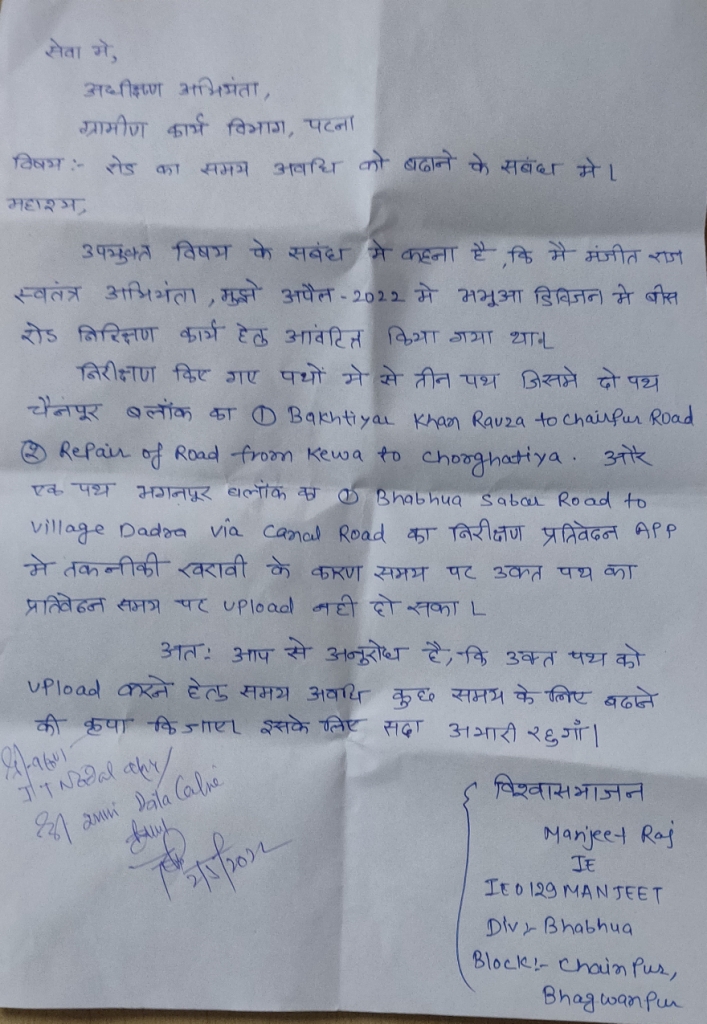 सेवा मे,
अधीक्षण अभियंता,
ग्रामीण कार्य विभाग, पटना
विषय:- रोड का समय अवधि को बढाने के सबंध मे।
महाशय,
उपयुक्त विषय के सबंध मे कहना है, कि मै मंजीत राज
स्वतंत्र अभियंता, मुझे अप्रैल-2022 मे भभुआ डिविजन मे बीस
रोड निरिक्षण कार्य हेतु आवंटित किया गया था।
निरीक्षण किए गए पथों मे से तीन पथ जिसमे दो पथ
चैनपूर बलॉक का ① Bakhtiyar Khan Rauza to Chainpur Road
② Repair of Road from Kewa to Chorghatiya. और
एक पथ भगनपूर बलॉक का ① Bhabhua Sabar Road to
Village Dadra Via Canal Road का निरीक्षण प्रतिवेदन APP
मे तकन्नीकी खरावी के कारण समय पर उक्त पथ का
प्रतिवेदन समय पर Upload नही हो सका।
अत: आप से अनुरोध है, कि उक्त पथ को
Upload करने हेतु समय अवधि कुछ समय के लिए बढाने
की कृपा कि जाए। इसके लिए सदा अभारी रहुगाँ।
IT Nodal
Data
2/5/2022
विश्वासभाजन
Manjeet Raj
IE
IE0129MANJEET
Div:- Bhabhua
Block:- Chainpur,
Bhagwanpur